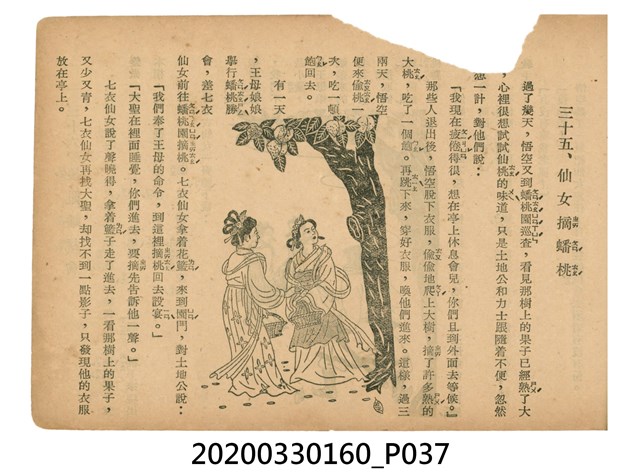 三十五、仙女摘蟠桃
過了幾天，悟空又到蟠桃園巡查，看見那樹上的果子已經熟了大
，心裡很想試試仙桃的味道，只是土地公和力士跟隨着不便，忽然
想一計，對他們說：
「我現在疲倦得很，想在亭上休息會兒，你們且到外面去等候。」
那些人退出後，悟空脫下衣服，偷偷地爬上大樹，摘了許多熟的
大桃，吃了一個飽。再跳下來，穿好衣服，喚他們進來。這樣，過三
兩天，悟空
便來偷桃一
次，吃一頓
飽回去。
有一天
，王母娘娘
舉行蟠桃勝
會，差七衣
仙女前往蟠桃園摘桃。七衣仙女拿着花籃，來到園門，對土地公說：
「我們奉了王母的命令，到這裡摘桃回去設宴。」
「大聖在裡面睡覺，你們進去，要摘先告訴他一聲。」
七衣仙女說了聲曉得，拿着籃子走了進去，一看那樹上的果子，
又少又青，七衣仙女再找大聖，却找不到一點影子，只發現他的衣服
放在亭上。
20200330160_P037